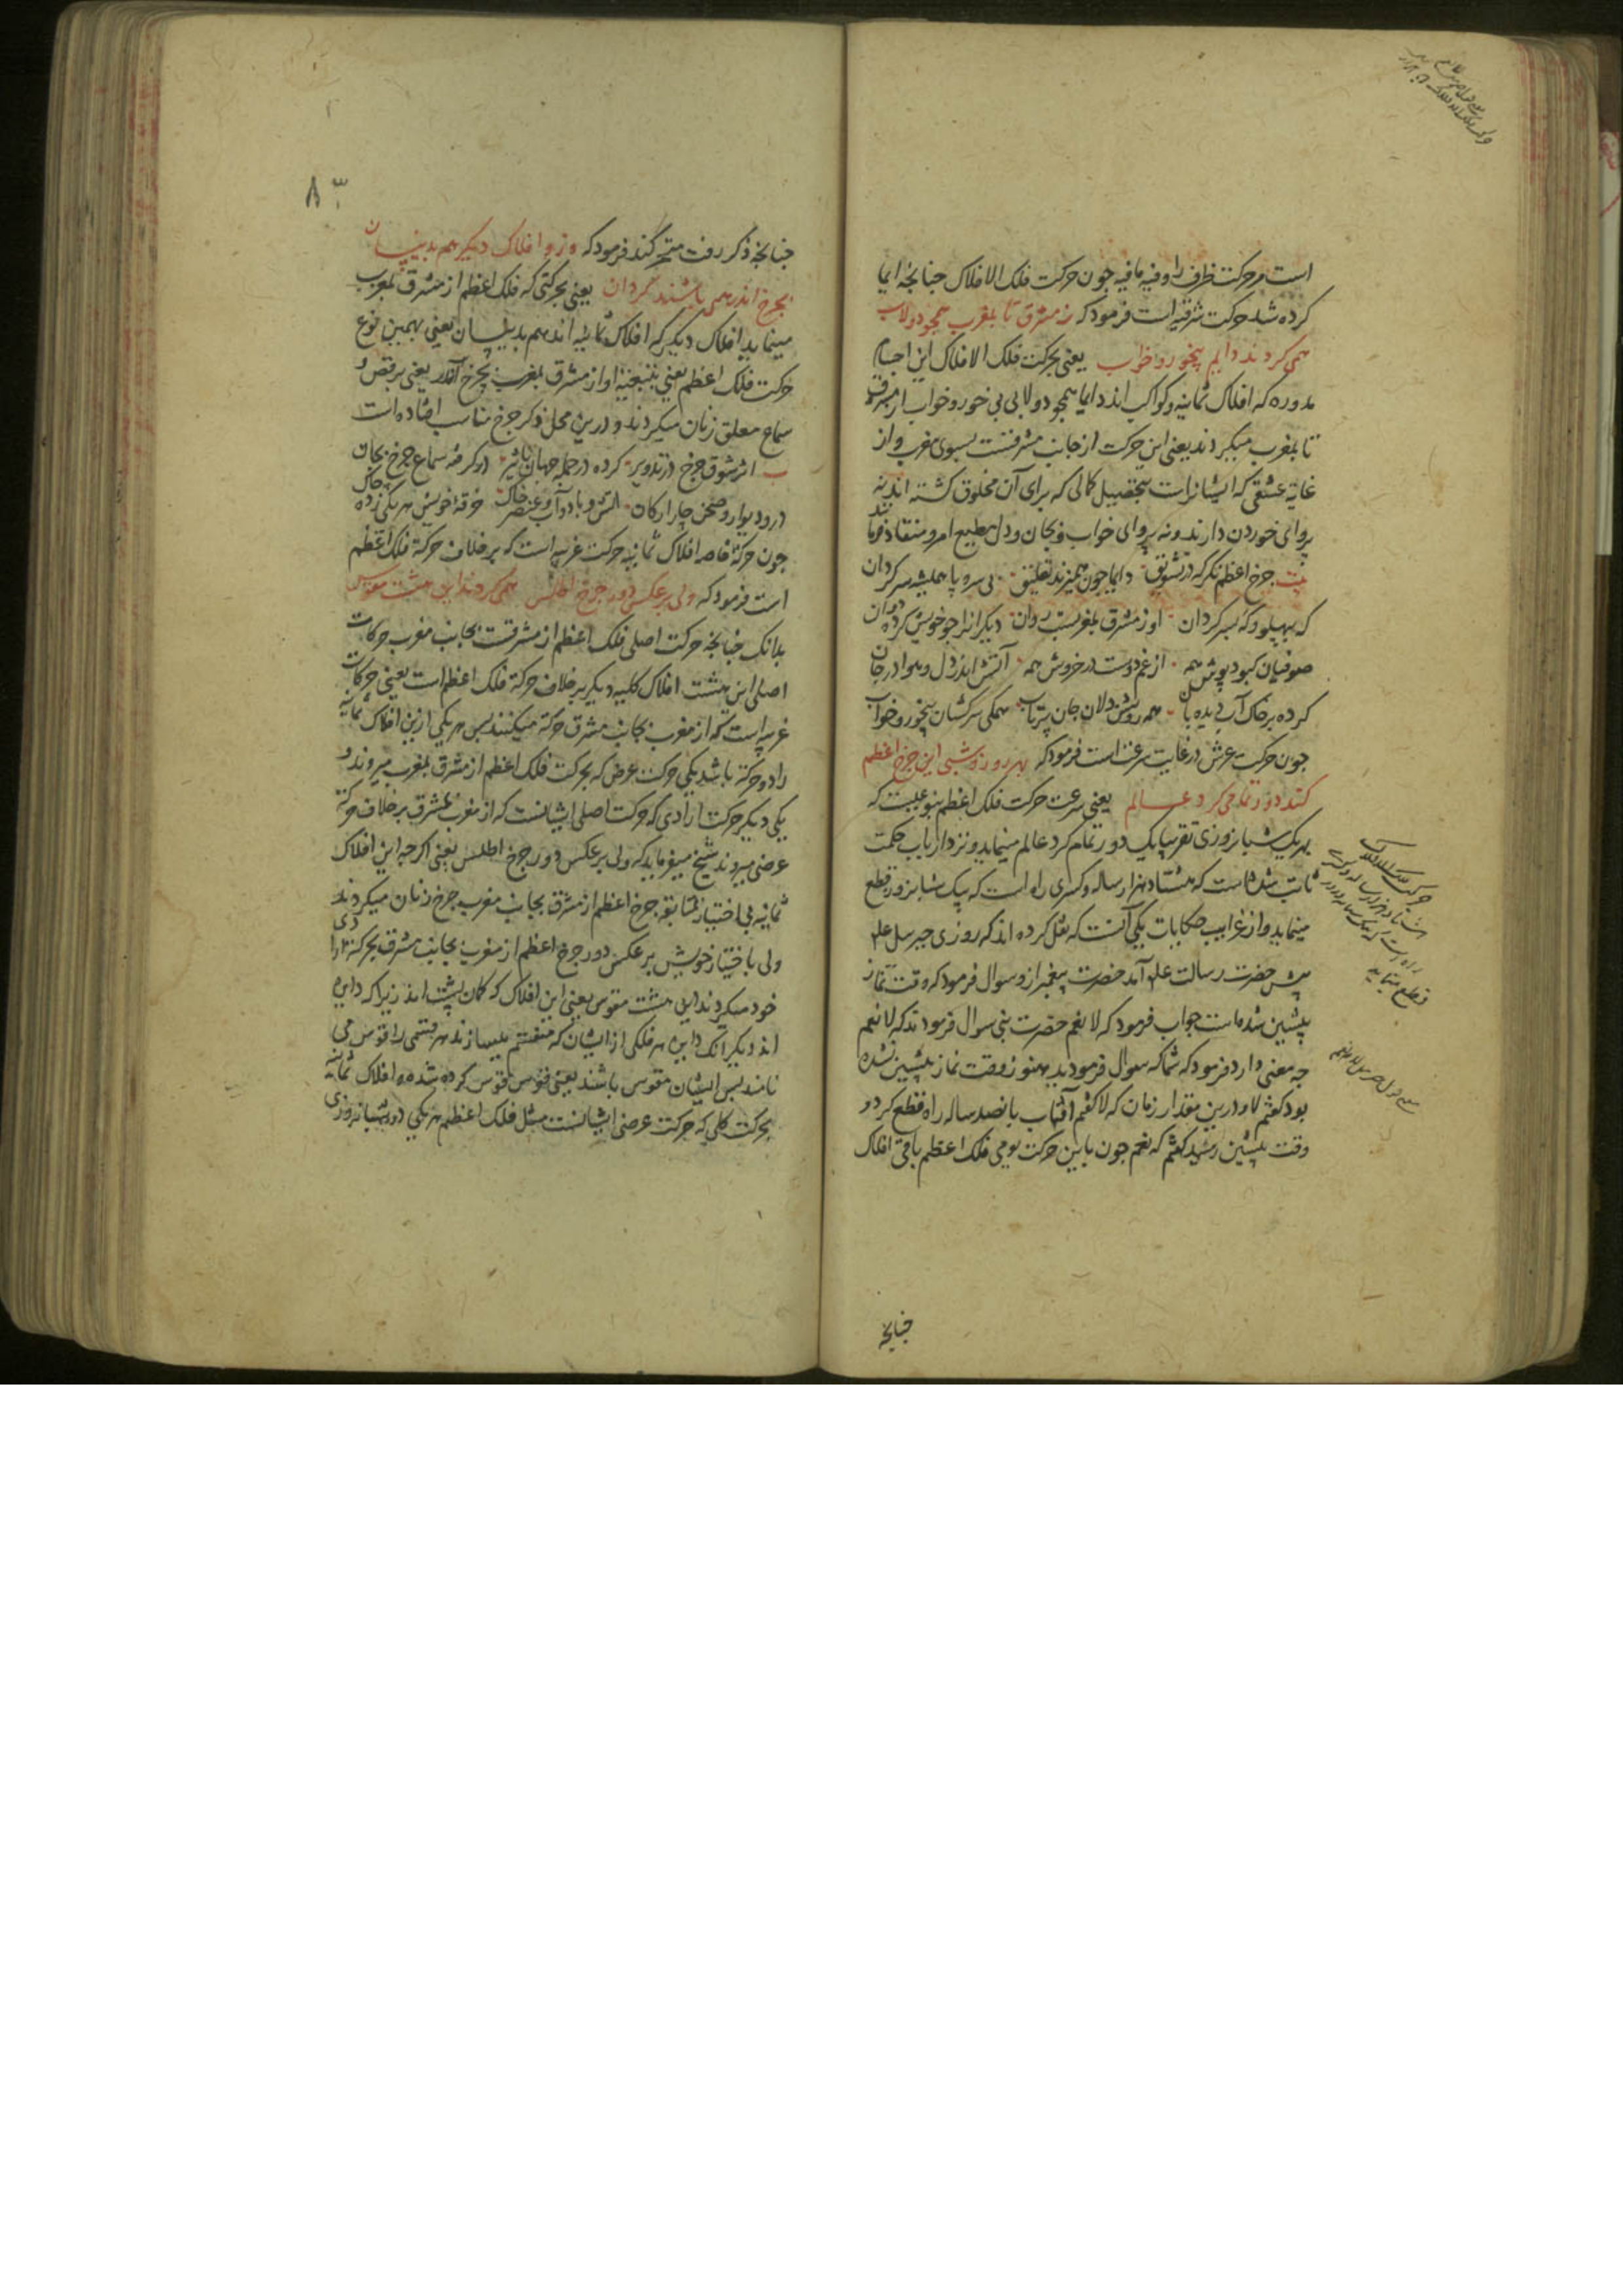 است مر حرکت ظرف را و فیه مافیه چون حرکت فلک الافلاک چنانچه ایما
کرده شد حرکت شرقیه است فرمود که ز مشرق تا بمغرب همچو دولاب
همی گردند دایم بیخور و خواب یعنی بحرکت فلک الافلاک این اجسام
مدوره که افلاک ثمانیه و کواکب اند دایما همچو دولابی بی خور و خواب از مشرق
تا بمغرب میگردند یعنی این حرکت از جانب مشرقست بسوی مغرب و از
غایة عشقی که ایشانراست بتحصیل کمالی که برای آن مخلوق گشته اند نه
پروای خوردن دارند و نه پروای خواب و بجان و دل مطیع امر و منقاد فرمانند
بیت چرخ اعظم نگر که در تشویق دایما چون همیزند تعلیق بی سر و پا همیشه سرگردان
که بپهلو و که بسر گردان او ز مشرق بمغربست روان دیگرانرا چو خویش کرده دوان
صوفیان کبود پوش همه از غم دوست در خروش همه آتش اندر دل و هوا در جان
کرده بر خاک آب دیده روان همه روشن دلان جان پرتاب همگی سرکشان بیخور و خواب
چون حرکت عرش در غایت سرعت است فرمود که بهر روز و شبی این چرخ اعظم
کند دور تمامی گرد عالم یعنی سرعت حرکت فلک اعظم بنوعیست که
بهر یک شبانروزی تقریبا یک دور تمام گرد عالم مینماید و نزد ارباب حکمت
ثابت شده است که هشتاد هزار ساله و کسری راه است که بیک شبانروز قطع
مینماید و از غرایب حکایات یکی آنست که نقل کرده اند که روزی جبرییل علیه
پیش حضرت رسالت علیه آمد حضرت پیغمبر ازو سوال فرمود که وقت نماز
پیشین شده است جواب فرمود که لا نعم حضرت نبی سوال فرمودند که لا نعم
چه معنی دارد فرمود که شما که سوال فرمودید هنوز وقت نماز پیشین نشده
بود گفتم لا و درین مقدار زمان که لا گفتم آفتاب پانصد ساله راه قطع کرد و
وقت پیشین رسید گفتم که نعم چون باین حرکت یومی فلک اعظم باقی افلاک
حرکت فلک الافلاک
هشتاد هزار ساله و کسری
قطع مینماید
چنانچه
۸۳
چنانچه ذکر رفت متحرکند فرمود که وزو افلاک دیگر هم بدینسان
بچرخ اندر همی باشند گردان یعنی بحرکتی که فلک اعظم از مشرق بمغرب
مینماید افلاک دیگر که افلاک ثمانیه اند هم بدینسان یعنی بهمین نوع
حرکت فلک اعظم یعنی بتبعیة او از مشرق بمغرب بچرخ اندر یعنی برقص و
سماع معلق زنان میگردند و درین محل ذکر چرخ مناسب افتاده است
اثر شوق چرخ در تدویر کرده در جمله جهان تاثیر در گرفته سماع چرخ بخاک
در و دیوار و صحن چار ارکان آتش و باد و آب و عنصر خاک خرقه خویش هر یکی زده چاک
چون حرکة خاصه افلاک ثمانیه حرکت غربیه است که بر خلاف حرکة فلک اعظم
است فرمود که ولی بر عکس دور چرخ اطلس همی گردند این هشت مقوس
بدانک چنانچه حرکت اصلی فلک اعظم از مشرقست بجانب مغرب حرکات
اصلی این هشت افلاک کلیه دیگر بر خلاف حرکة فلک اعظم است یعنی حرکات
غربیه است که از مغرب بجانب مشرق حرکة میکنند پس هر یکی ازین افلاک ثمانیه
را دو حرکة باشد یکی حرکت عرض که بحرکت فلک اعظم از مشرق بمغرب میروند و
یکی دیگر حرکت ارادی که حرکت اصلی ایشانست که از مغرب بمشرق بر خلاف حرکة
عرضی میروند شیخ میفرماید که ولی بر عکس دور چرخ اطلس یعنی اگر چه این افلاک
ثمانیه بی اختیار بمتابعة چرخ اعظم از مشرق بجانب مغرب چرخ زنان میگردند
ولی باختیار خویش بر عکس دور چرخ اعظم از مغرب بجانب مشرق بحرکة ارادی
خود میگردند این هشت مقوس یعنی این افلاک که کمان پشت اند زیرا که دایره
اند دیگر آنک دایره هر فلکی از ایشان که منقسم میسازند هر قسمی را قوس می
نامند پس ایشان مقوس باشند یعنی قوس قوس کرده شده و افلاک ثمانیه
بحرکت کلی که حرکت عرضی ایشانست مثل فلک اعظم هر یکی در شبانه روزی